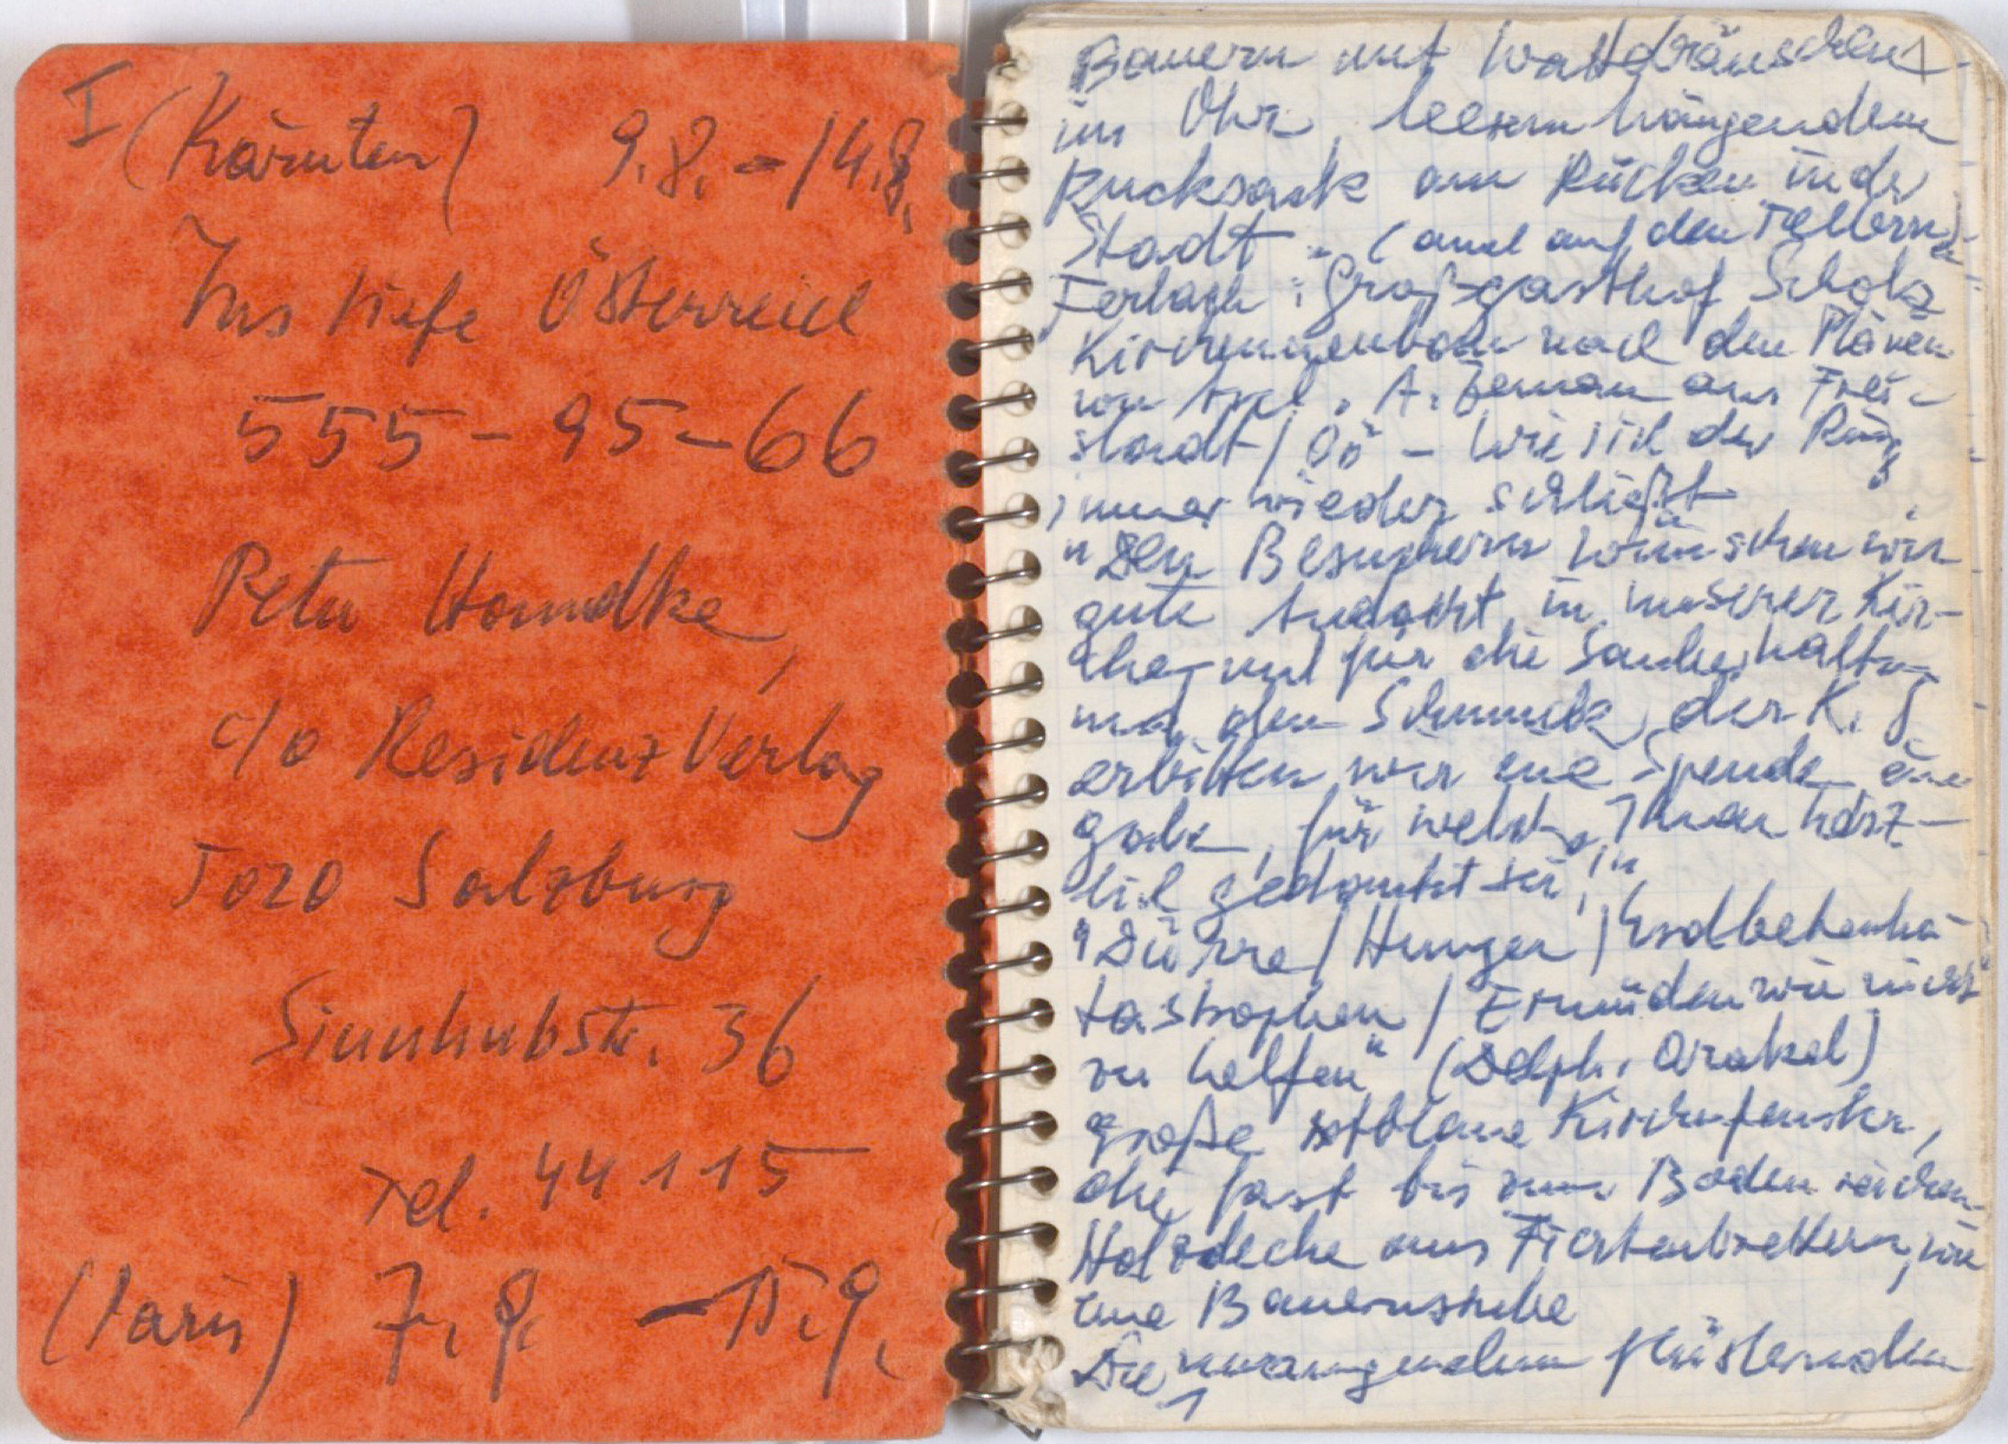 I (Kärnten) 9.8. - 14.8.
Ins tiefe Österreich
555-95-66
Peter Handke,
c/o Residenz Verlag
5020 Salzburg
Sinnhubstr. 36
Tel. 44 1 15
(Paris) 7.9. - 15.9.
Bauern mit
im Ohr, leerem hängendem
Rucksack am Rücken in der
Stadt (auch auf den Tellern)
Ferlach: Großgasthof Scholz
nach den Plänen
von A. Zeman aus Frei-
stadt/OÖ - wie sich der Ring
immer wieder schließt
"Den Besuchern wünschen wir
gute Andacht in unserer Kir-
che, und für die Sauberhaltung
und den Schmuck der K.
erbitten wir eine Spende eine
gabe, für welche Ihnen herz-
lich gedankt sei!"
"Dürre / Hunger / Erdbebenka-
tastrophen / Ermüden wir nicht
zu helfen" (Delph. Orakel)
große rotblaue Kirchenfenster,
die fast bis zum Boden reichen,
Holzdecke aus Fichtenbrettern, wie
eine Bauernstube
Die flüsternden
1